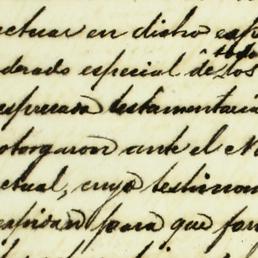 ectuar en dicho esp
todo
derado especial de los
espresada testamentaria
otorgaron ante el No
ctual, cuyo testimon
espidan para que for